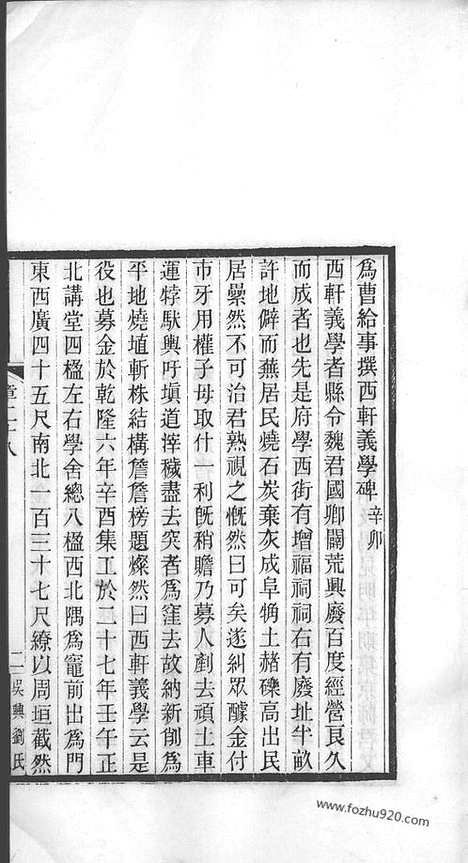 為曹給事撰西軒義學碑辛卯
西軒義學者縣令魏君國卿闢荒興廢百度經營艮久
而成者也先是府學西街有增福祠祠右有廢址半畝
許地僻而蕪居民燒石炭棄灰成阜觕土赭礫高出民
居纍然不可治君熟視之慨然曰可矣遂糾眾醵金付
市牙用權子母取什一利旣稍贍乃募人剷去頑土車
運㹀馱輿吁塡道滓穢盡去突者為窪去故納新削為
平地燒埴斬株結構詹詹榜題燦然曰西軒義學云是
役也募金於乾隆六年辛酉集工於二十七年壬午正
北講堂四楹左右學舍總八楹西北隅為竈前出為門
東西廣四十五尺南北一百三十七尺繚以周垣截然
二
吳興劉氏
www.fozhu920.com